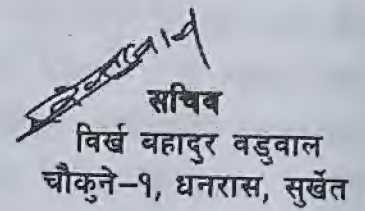 सचिव
विर्ख बहादुर वडुवाल
चौकुने-१, धनरास, सुर्खेत